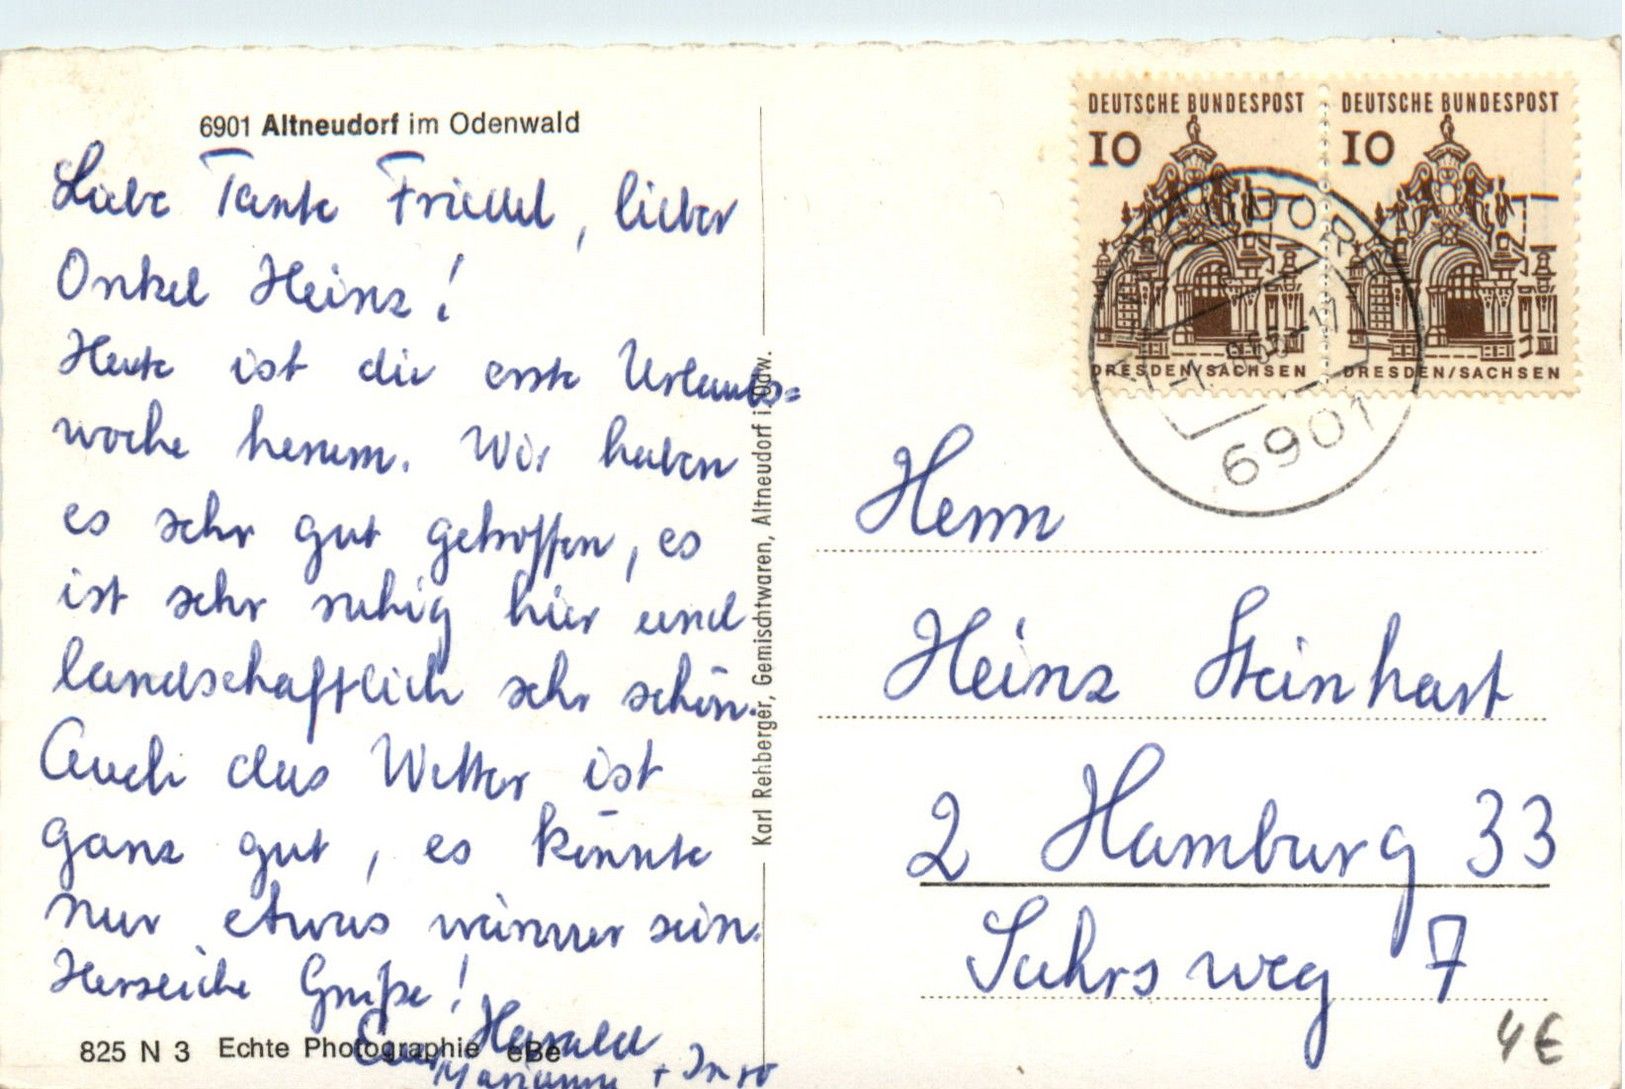 6901 Altneudorf im Odenwald
Liebe Tante Friedel, lieber
Onkel Heinz!
Heute ist die erste Urlaubs=
woche herum. Wir haben
es sehr gut getroffen, es
ist sehr ruhig hier und
landschaftlich sehr schön.
Auch das Wetter ist
ganz gut, es könnte
nur etwas wärmer sein.
Herzliche Grüße!
Eure Harald
Marianne + Ingo
825 N 3 Echte Photographie eBe
Karl Rehberger, Gemischtwaren, Altneudorf i. Odw.
DEUTSCHE BUNDESPOST
10
DRESDEN/SACHSEN
DEUTSCHE BUNDESPOST
10
DRESDEN/SACHSEN
6901
Herrn
Heinz Steinhart
2 Hamburg 33
Suhrsweg 7
4€